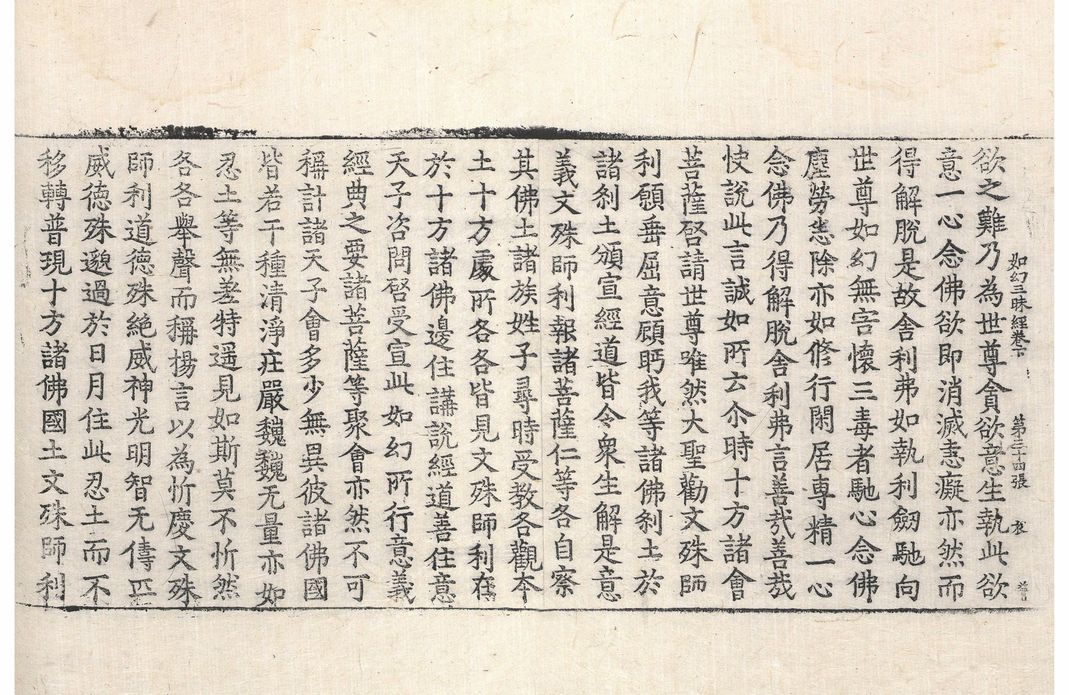 如幻三昧經卷下 第三十四張
欲之難乃為世尊貪欲意生執此欲
意一心念佛欲即消滅恚癡亦然而
得解脫是故舍利弗如執利劒馳向
世尊如幻無害懷三毒者馳心念佛
塵勞恚除亦如修行閑居專精一心
念佛乃得解脫舍利弗言善哉善哉
快說此言誠如所云尒時十方諸會
菩薩啓請世尊唯然大聖勸文殊師
利願垂屈意顧眄我等諸佛剎土於
諸剎土頒宣經道皆令衆生解是意
義文殊師利報諸菩薩仁等各自察
其佛土諸族姓子尋時受教各觀本
土十方處所各各皆見文殊師利在
於十方諸佛邊住講說經道善住意
天子咨問啓受宣此如幻所行意義
經典之要諸菩薩等聚會亦然不可
稱計諸天子會多少無異彼諸佛國
皆若干種清淨莊嚴巍巍无量亦如
忍土等無差特遥見如斯莫不忻然
各各舉聲而稱揚言以為忻慶文殊
師利道德殊絕威神光明智无儔匹
威德殊邈過於日月住此忍土而不
移轉普現十方諸佛國土文殊師利